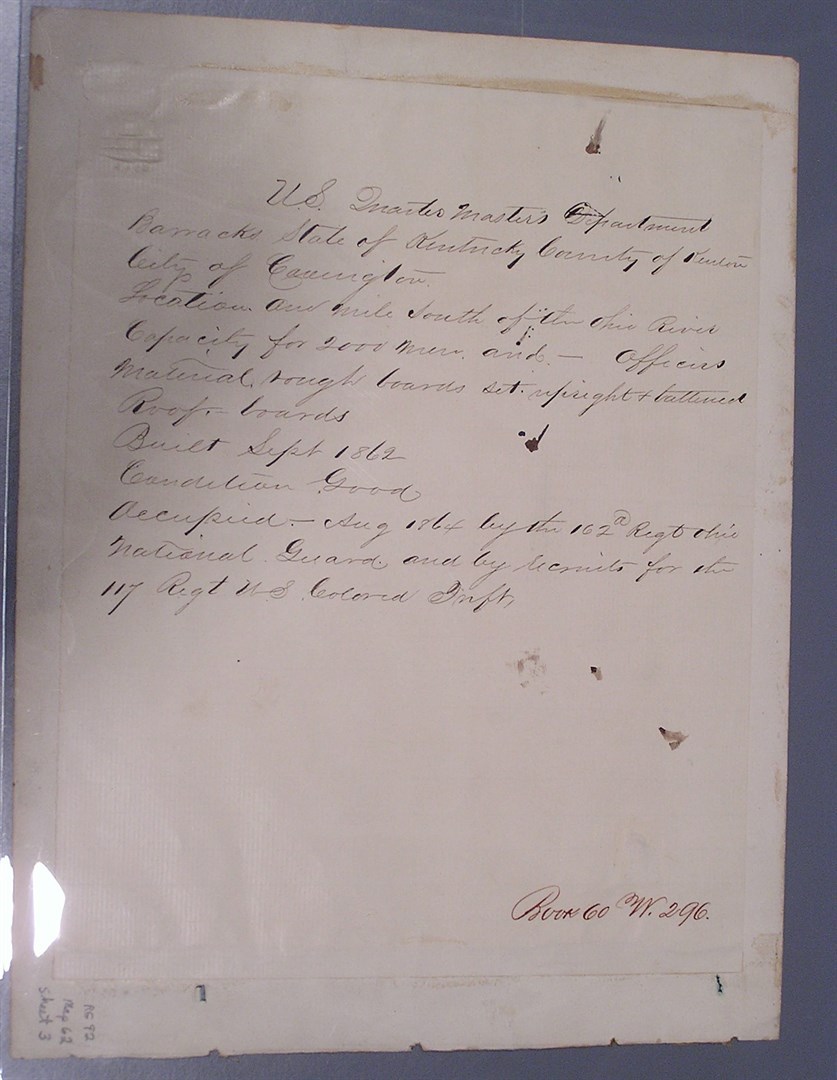 U.S. Quarter Master's Department
Barracks, State of Kentucky County of Kenton
City of Covington.
Location. One mile South of the Ohio River
Capacity for 2000 Men. and — Officers
Material, rough boards set. upright & battened
Roof. - boards
Built Sept 1862
Condition Good
Occupied - Aug 1864 by the 162d Regt Ohio
National Guard, and by recruits for the
117 Regt U.S. Colored Infty,
Book 60 W. 296.
RG 92
Map 62
Sheet 3